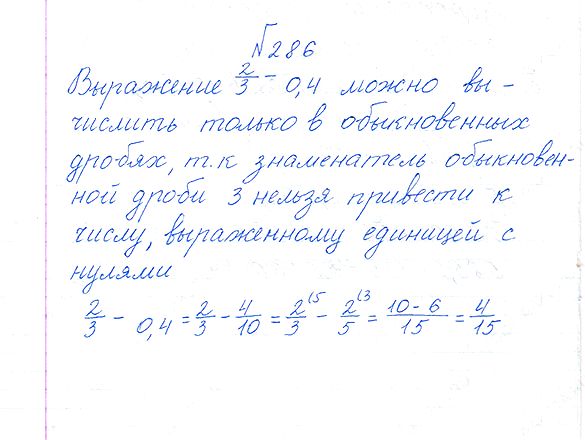 №286
Выражение 2/3 - 0,4 можно вы-
числить только в обыкновенных
дробях, т.к знаменатель обыкновен-
ной дроби 3 нельзя привести к
числу, выраженному единицей с
нулями
2/3 - 0,4 = 2/3 - 4/10 = 2/3^(5 - 2/5^(3 = 10-6/15 = 4/15